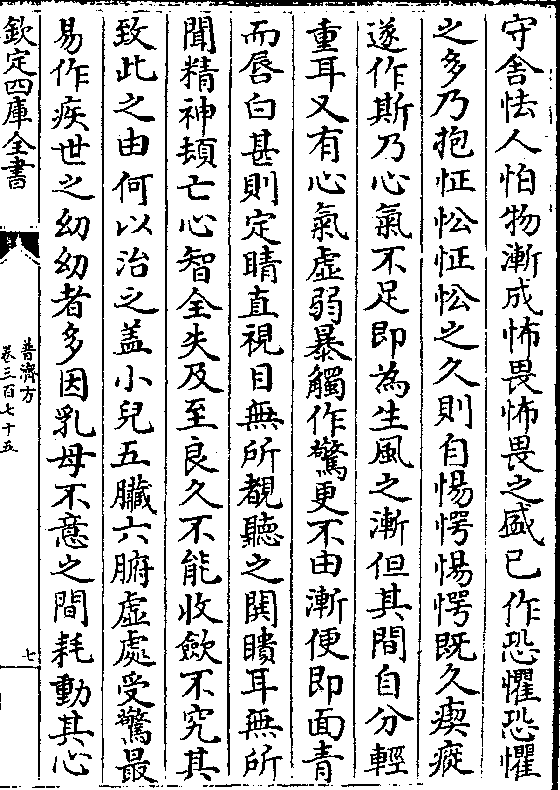 守舍怯人怕物漸成怖畏怖畏之盛已作恐懼恐懼
之多乃抱怔忪怔忪之久則自惕愕惕愕既久瘈瘲
遂作斯乃心氣不足即為生風之漸但其間自分輕
重耳又有心氣虛弱暴觸作驚更不由漸便即面青
而唇白甚則定睛直視目無所覩聽之関聵耳無所
聞精神頓亡心智全失及至良久不能收斂不究其
致此之由何以治之蓋小兒五臟六腑虛處受驚最
易作疾世之幼幼者多因乳母不意之間耗動其心
欽定四庫全書
普濟方
卷三百七十五
七